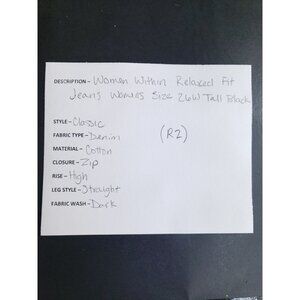 DESCRIPTION – Women Within Relaxed Fit
Jeans Womens Size 26W Tall Black
STYLE – Classic
FABRIC TYPE – Denim
(R2)
MATERIAL – Cotton
CLOSURE – Zip
RISE – High
LEG STYLE – Straight
FABRIC WASH – Dark